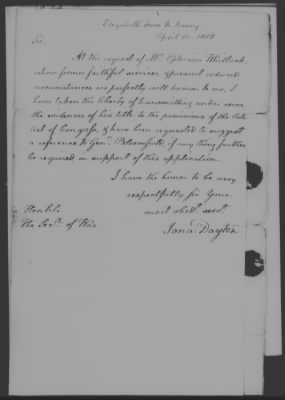 Elizabeth Town N. Jersey
April 10. 1818
Sir,
At the request of Mr. Ephraim Whitlock,
whose former faithful services, & present reduced
circumstances are perfectly well known to me, I
have taken the liberty of transmitting under cover
the evidences of his title to the provisions of the late
Act of Congress, & have been requested to suggest
a reference to Genl. Bloomfield if any thing further
be required in support of this application.
I have the honor to be very
respectfully, Sir Your
most obedt. servt.
Jona: Dayton
Honble.
The Secy. of War